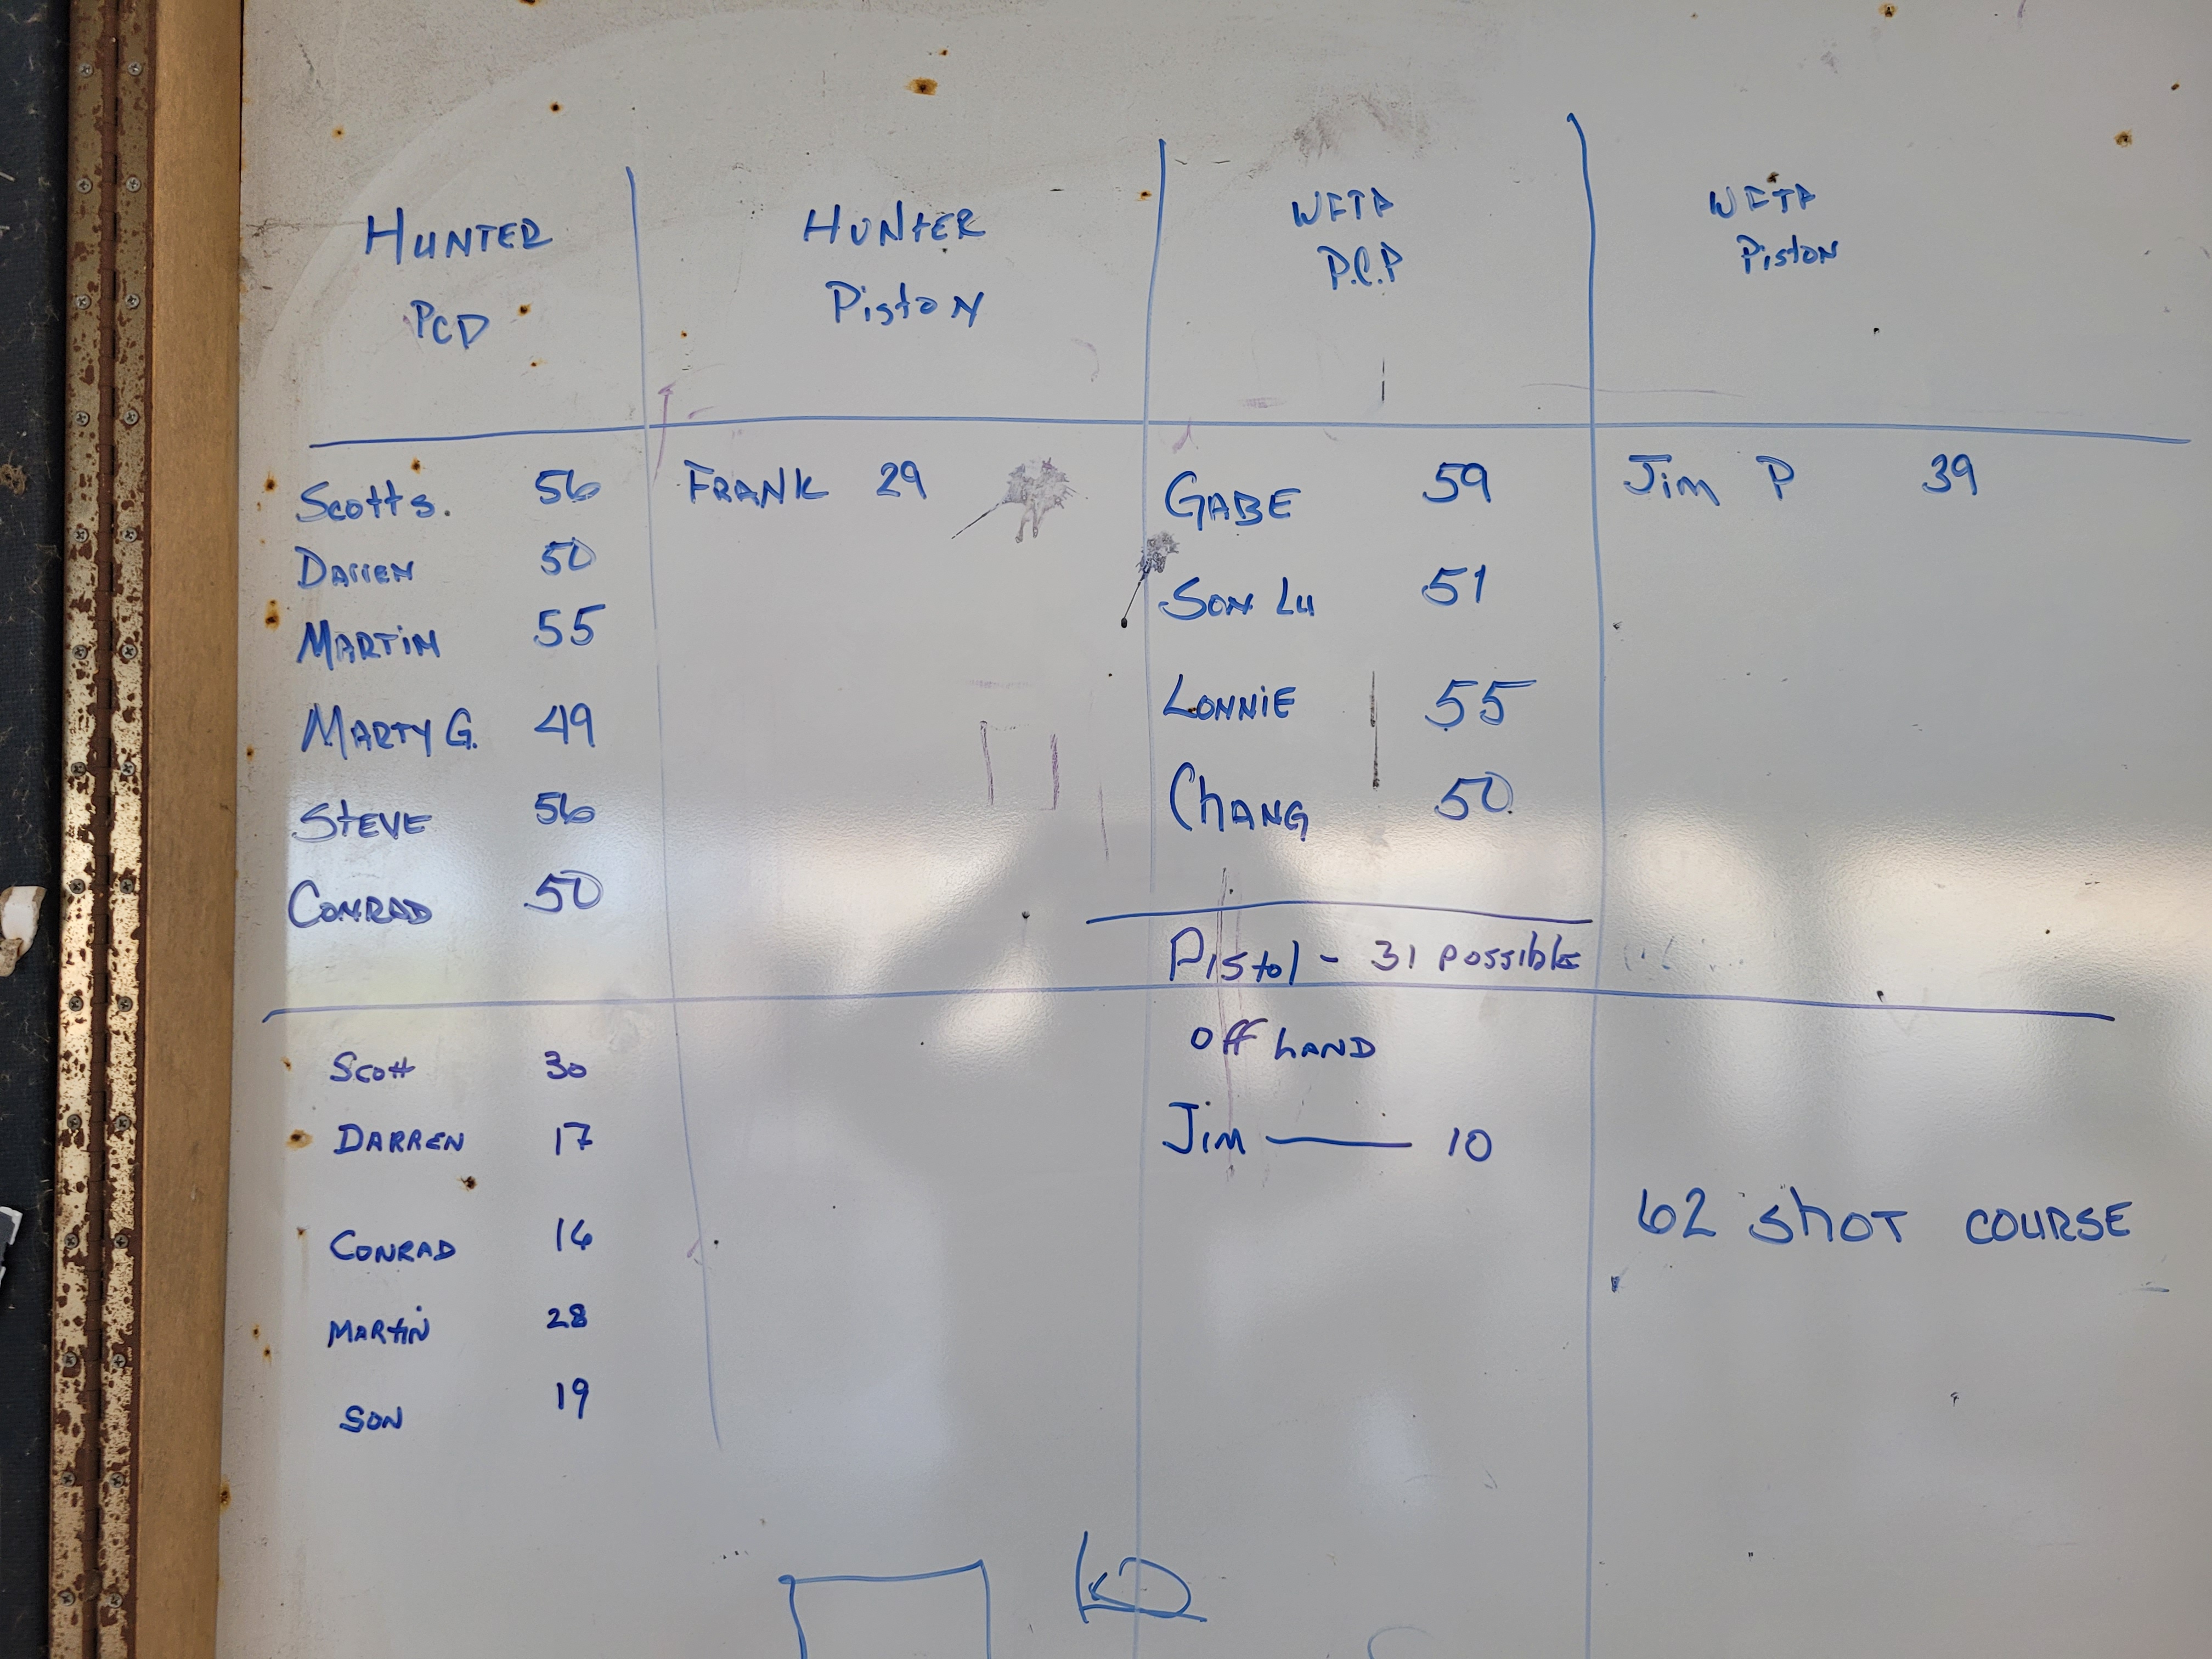 HUNTER
PCP
HUNTER
Piston
WFTF
P.C.P
WFTF
Piston
Scott s. 56
Darren 50
MARTIN 55
MARTY G. 49
STEVE 56
CONRAD 50
FRANK 29
GABE 59
SON LU 51
LONNIE 55
CHANG 50
Jim P 39
Pistol - 31 possible
Scott 30
DARREN 17
CONRAD 16
MARTIN 28
SON 19
Off hAND
Jim — 10
62 Shot COURSE